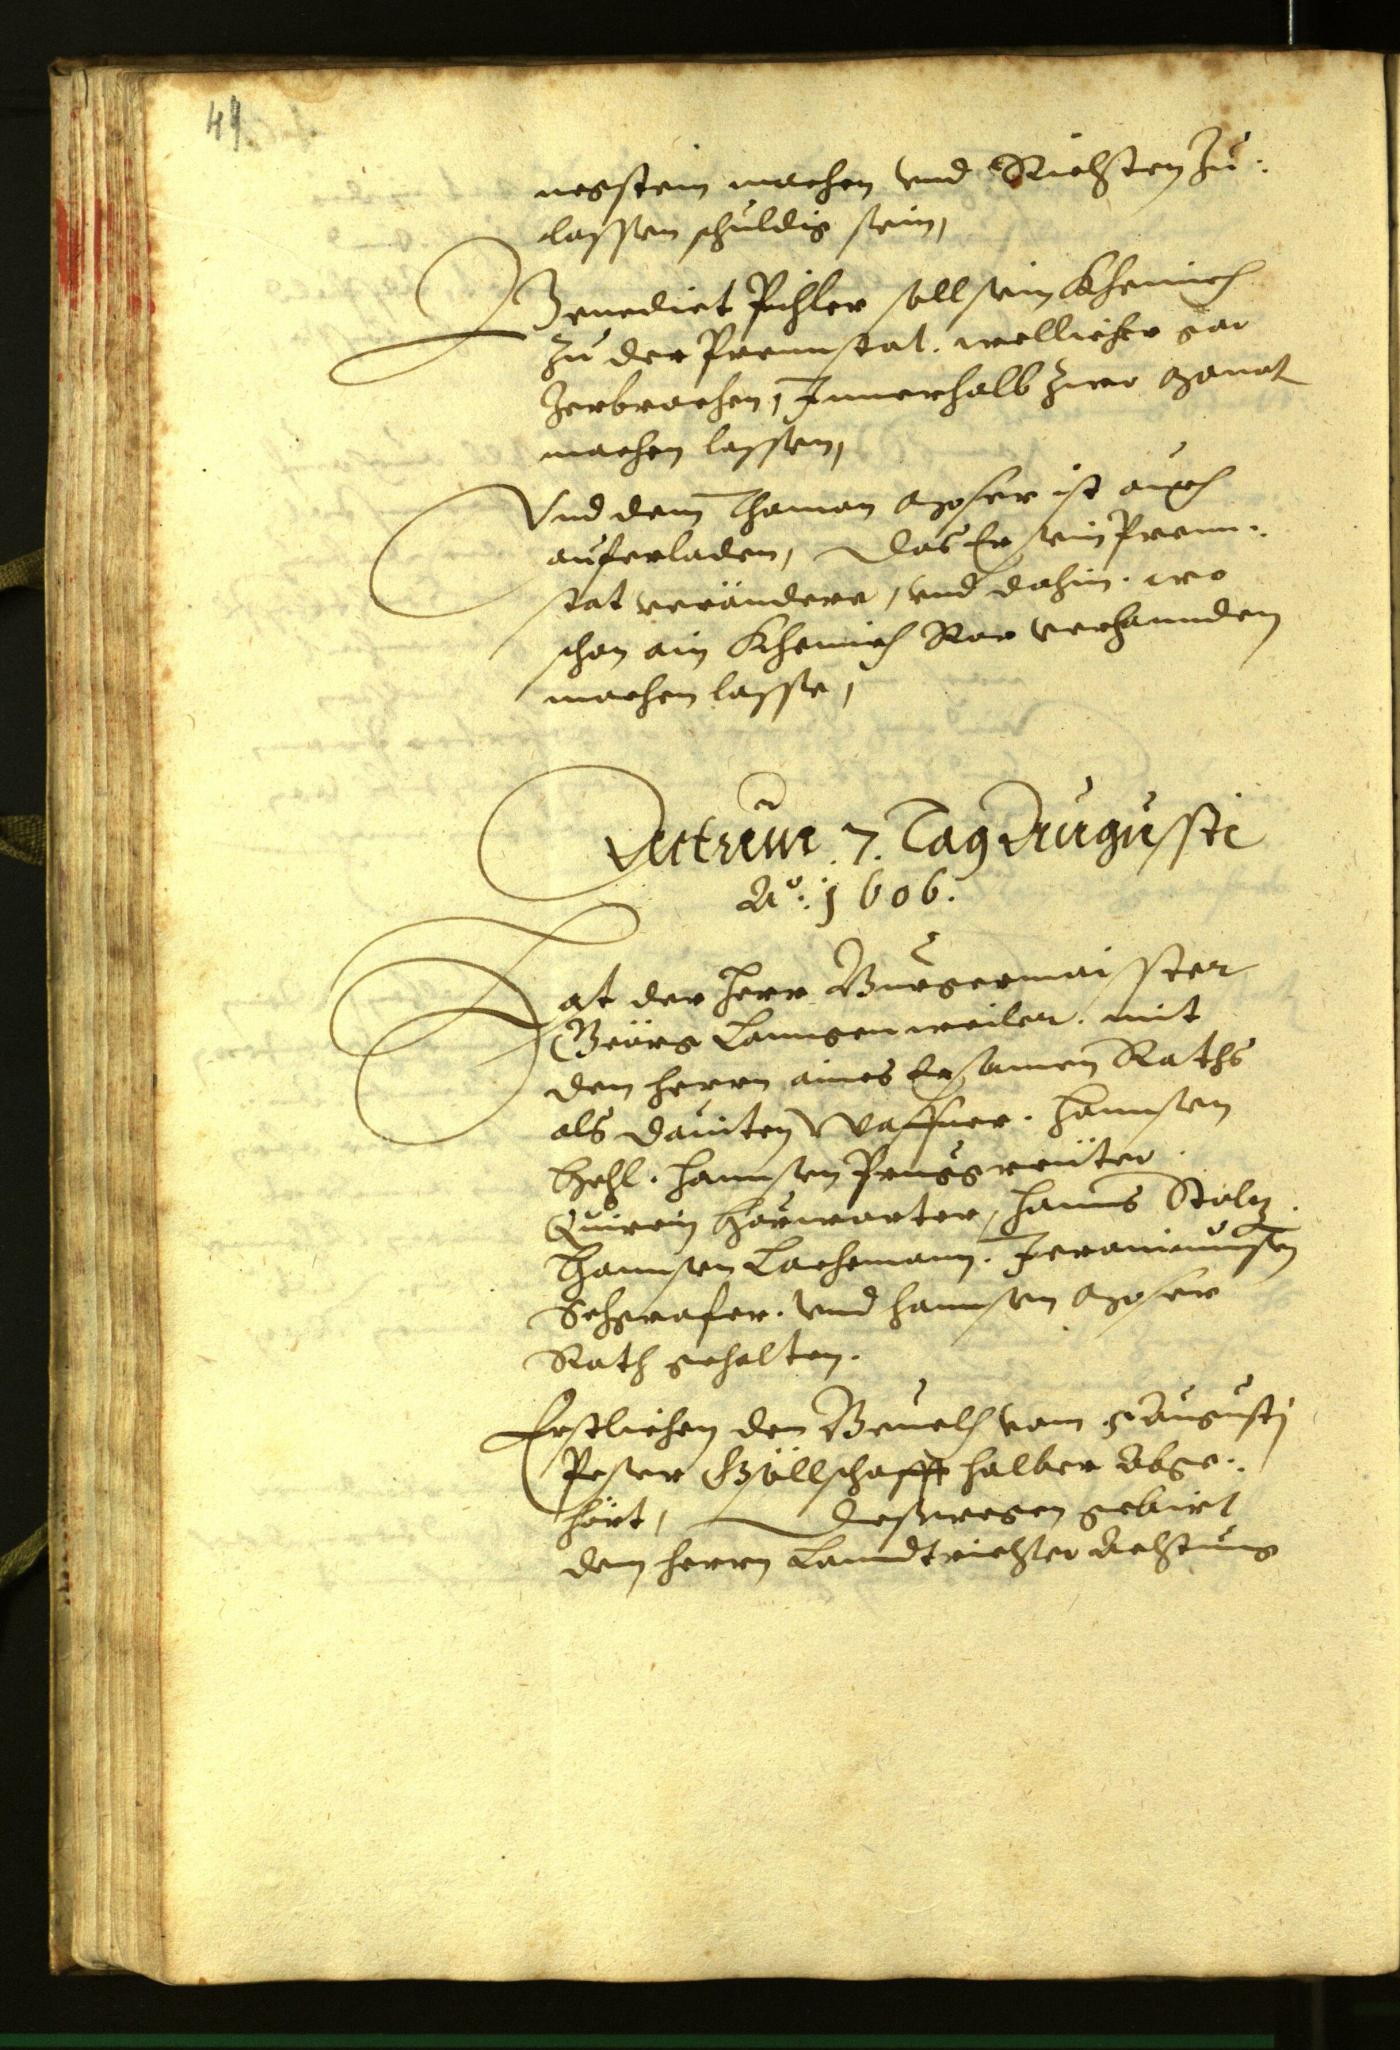 41
nesstein machen vnd Richten zu-
lassen schuldig sein,
Benedict Pichler soll sein Khemich
zu der Prennstat. wellicher gar
zerbrochen, Innerhalb zwo Monat
machen lassen,
Vnd dem Thaman Moser ist auch
auferladen, das Er sein Prenn-
stat verändere, vnd dahin. wo
schon ain Khemich Ror verhannden
machen lasse,
Actum. 7. Tag Augusti
Ao: 1606.
Hat der Herr Burgermaister
Geörg Lanngenweiler. mit
den herrn aines Ersamen Raths
als Dauiten Waffner. Hannsen
Hehl. Hannsen Prugreüter.
Quirin Hörwarter, Hanns Stolz.
Hannsen Lachemann. Jeronimussen
Schgrafer. vnd Hannsen Moser
Rath gehalten.
Erstlichen den Beuelch vom Augusti
Peter Gsöllschafft halber Abge-
hört, Desswegen gebürt
dem herrn Lanndtrichter Achtung